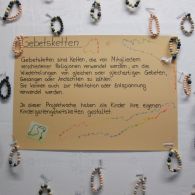 Gebetsketten
Gebetsketten sind Ketten, die von Mitgliedern
verschiedener Religionen verwendet werden, um die
Wiederholungen von gleichen oder gleichartigen Gebeten,
Gesängen oder Andachten zu zählen.
Sie können auch zur Meditation oder Entspannung
verwendet werden.
In dieser Projektwoche haben die Kinder ihre eigenen
Kindergartengebetsketten gestaltet.